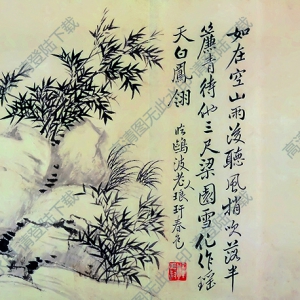 如在空山雨後聽風梢吹落半
簾青待他三尺梁園雪化作瑶
天白鳳翎
臨鷗波老人琅玕春色